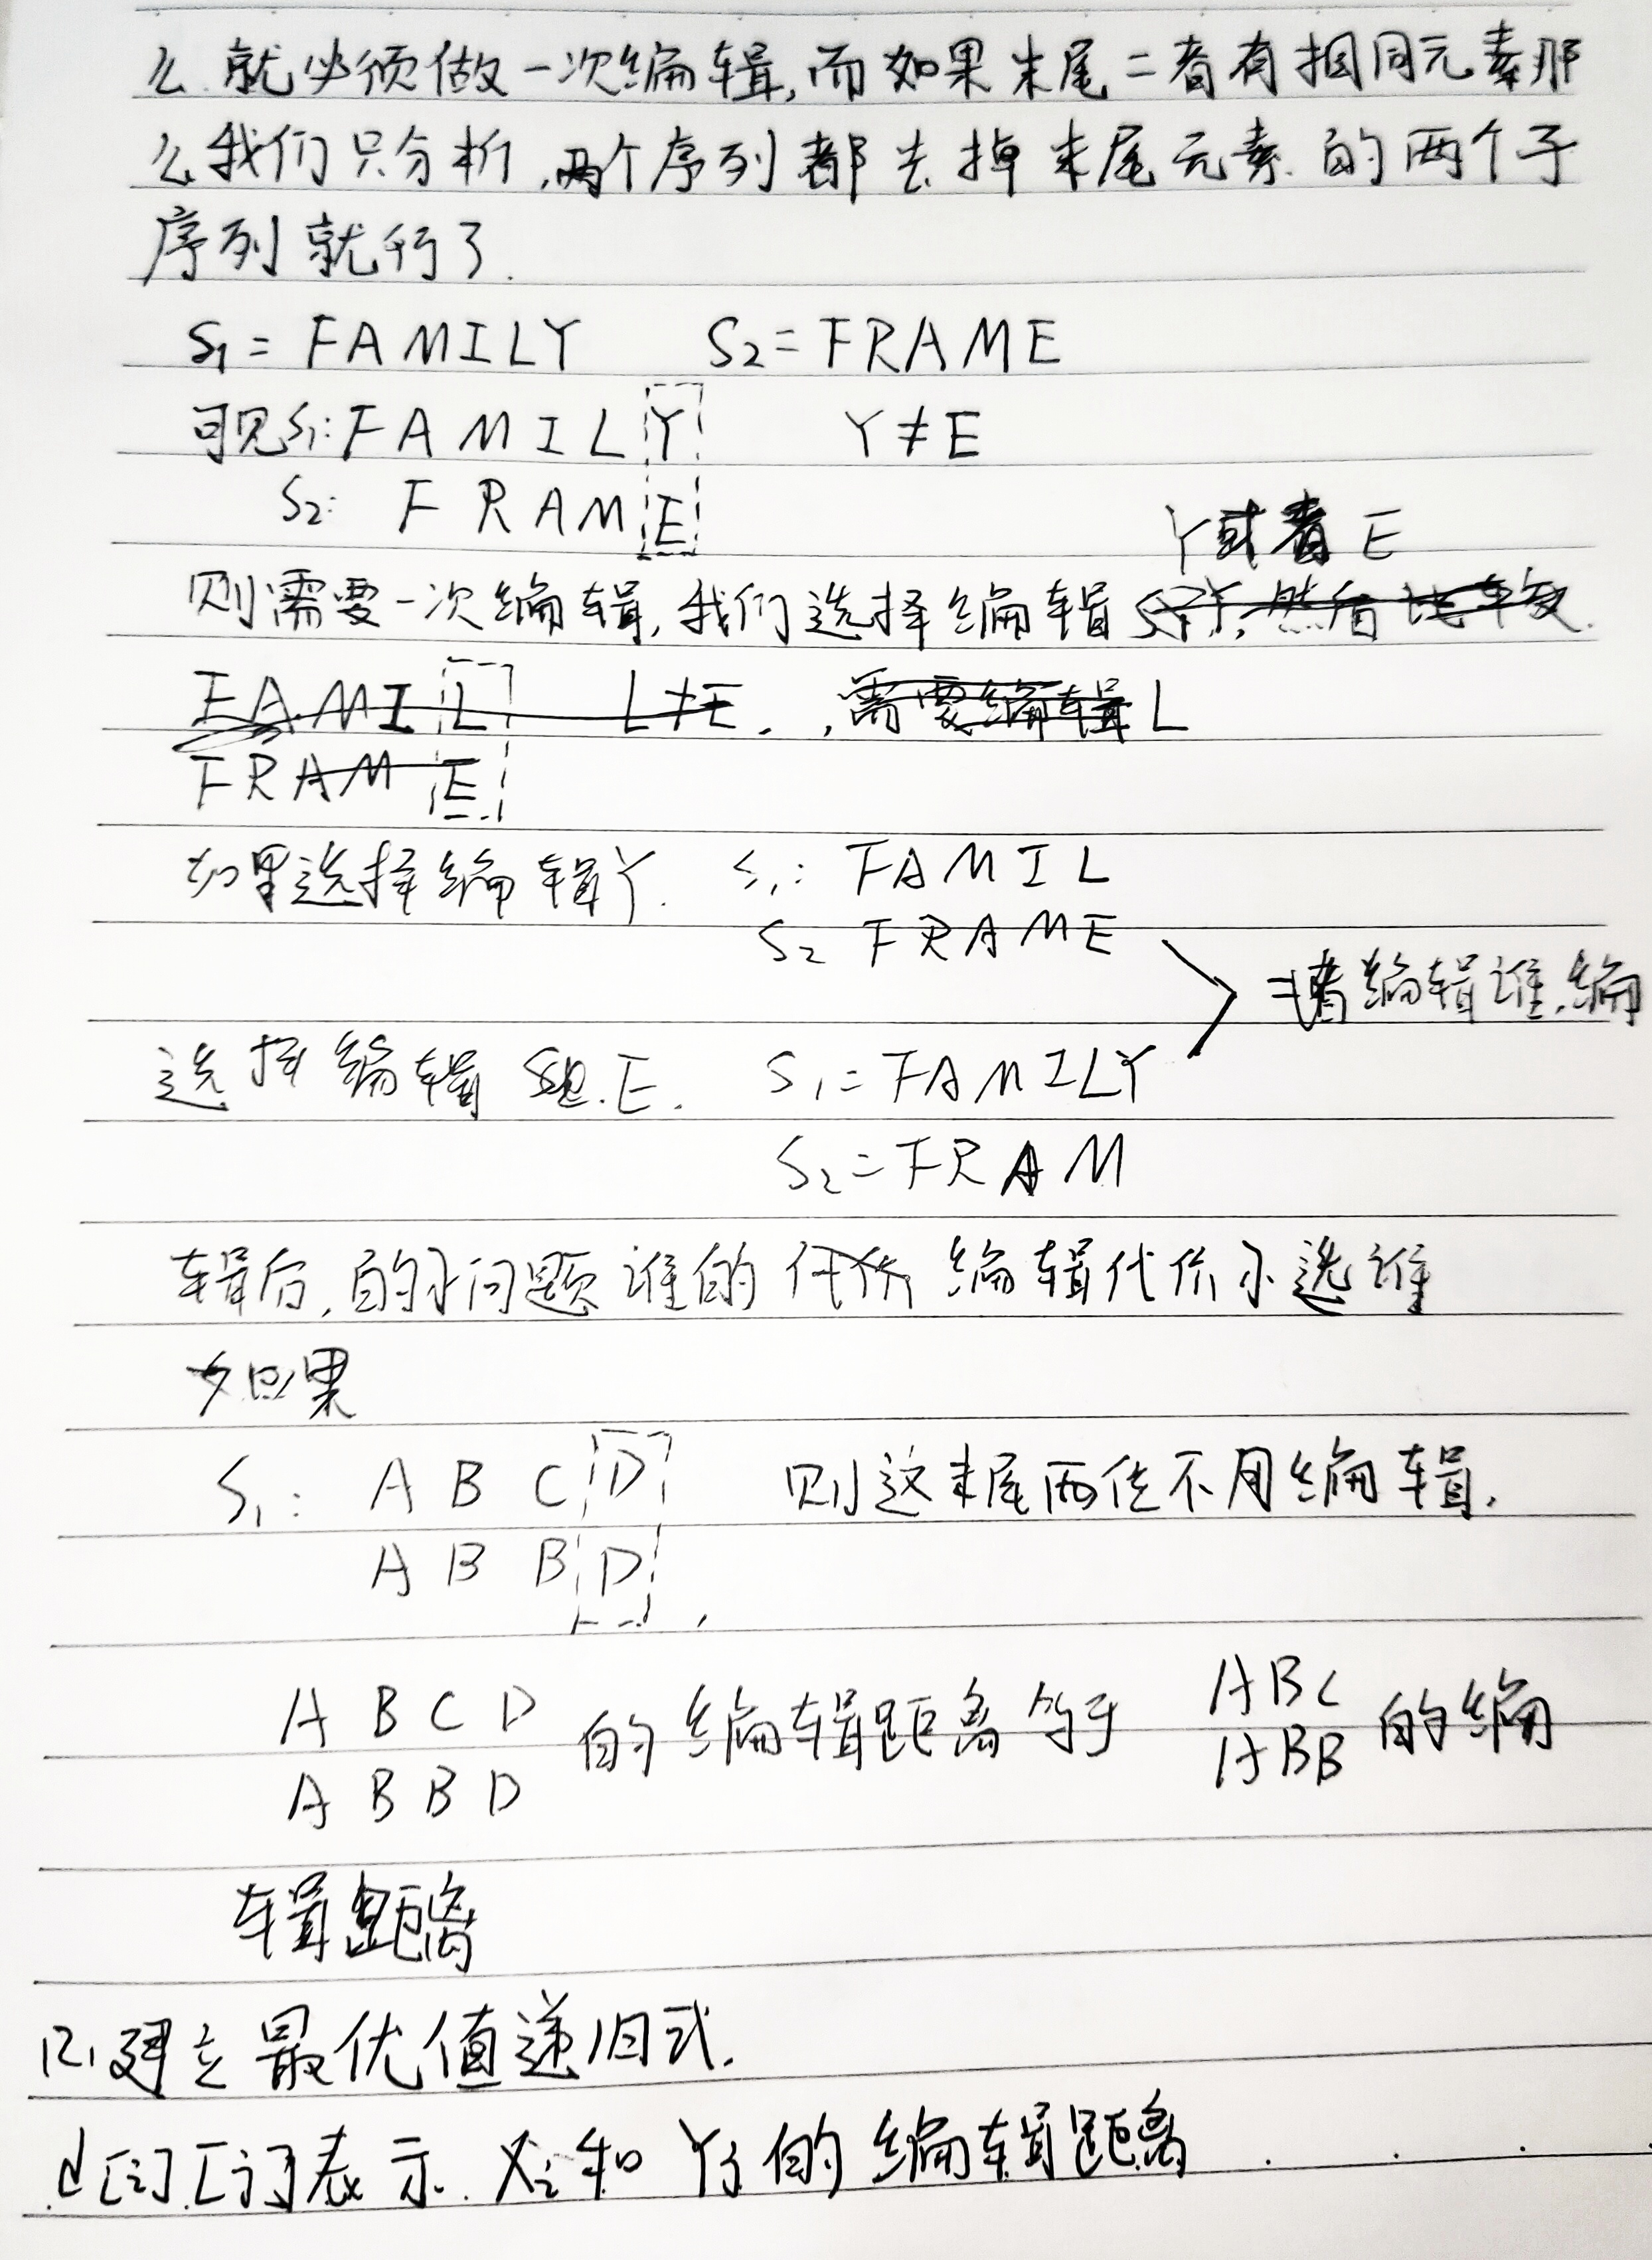 么.就必须做一次编辑,而如果末尾二者有相同元素那
么我们只分析,两个序列都去掉末尾元素.的两个子
序列就行了.
S₁=FAMILY S₂=FRAME
可见S₁:FAMILY Y≠E
S₂: FRAME
Y或者E
则需要一次编辑,我们选择编辑
FAMIL L≠E.,需要编辑L
FRAME
如果选择编辑Y. S₁:FAMIL
S₂ FRAME
二者编辑谁.编
选择编辑 E. S₁=FAMILY
S₂=FRAM
辑后,的子问题谁的代价编辑代价小选谁
如果
S₁: A B C D 则这末尾两位不用编辑.
A B B D
A B C D 的编辑距离等于 ABC 的编
A B B D ABB
辑距离
(2)建立最优值递归式.
d[i][j]表示.Xi和Yj的编辑距离